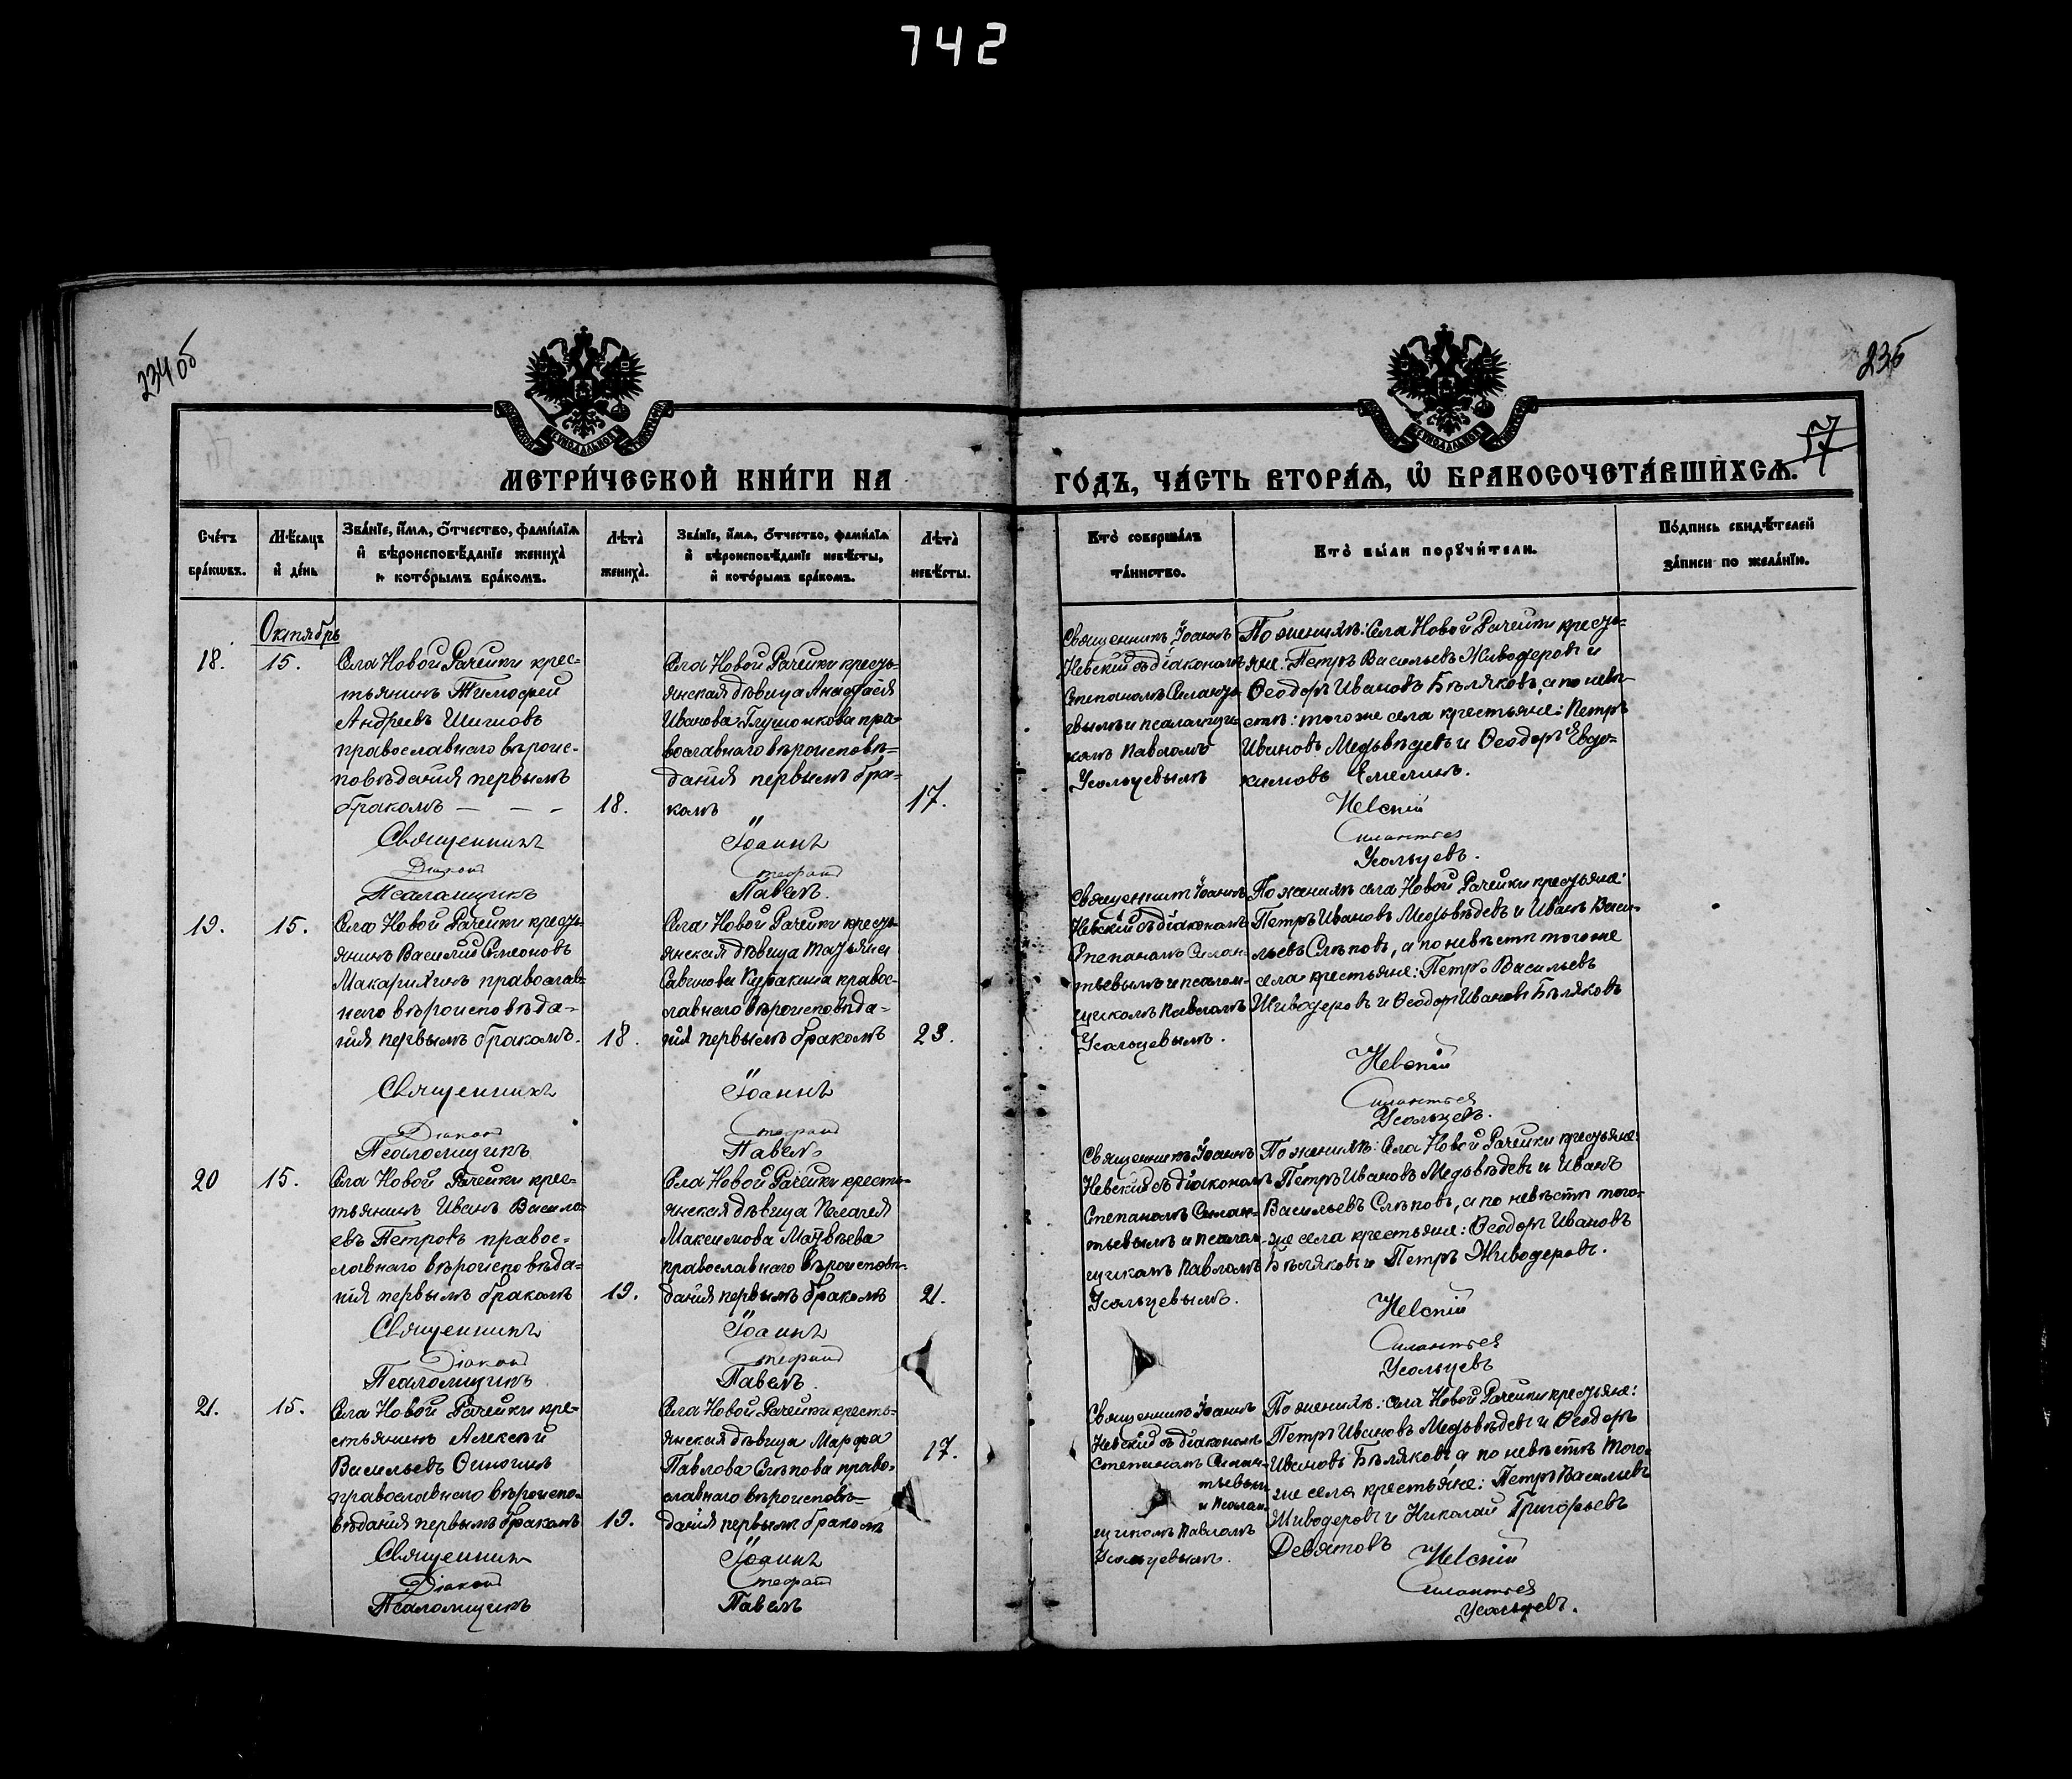 742
234об
235
57
МЕТРИ́ЧЕСКОЙ КНИ́ГИ НА
ГО́ДЪ, ЧА́СТЬ ВТОРА́Ѧ, Ѽ БРАКОСОЧЕТА́ВШИХСѦ.
Сче́тъ бра́кѡвъ.
Мѣ́сѧцъ и҆ де́нь
Зва́нїе, и҆́мѧ, ѻ҆́тчество, фамѝлїѧ
и҆ вѣроисповѣ́данїе жениха̀
и҆ кото́рымъ бра́комъ.
Лѣ́та жениха̀.
Зва́нїе, и҆́мѧ, ѻ҆́тчество, фамѝлїѧ
и҆ вѣроисповѣ́данїе невѣ́сты,
и҆ кото́рымъ бра́комъ.
Лѣ́та невѣ́сты.
Кто̀ соверша́лъ
та́инство.
Кто̀ бы́ли порꙋчи́тели.
По́дпись свидѣ́телей
за́писи по жела́нїю.
Октябрь
18.
15.
Села Новой Рачейки крес-
тьянинъ Тимофей
Андреевъ Шишовъ
православнаго вѣроис-
повѣданія первымъ
бракомъ — — -
18.
Села Новой Рачейки кресть-
янская дѣвица Анастасія
Иванова Глушонкова пра-
вославнаго вѣроисповѣ=
данія первымъ бра-
комъ
17.
Священникъ Іоаннъ
Невскій съ діакономъ
Степаномъ Силанть-
евымъ и псаломщи-
комъ Павломъ
Усольцевымъ
По женихѣ: Села Новой Рачейки кресть-
яне: Петръ Васильевъ Живодеровъ и
Ѳеодоръ Ивановъ Бѣляковъ, а по невѣ-
стѣ: того же села крестьяне: Петръ
Ивановъ Медвѣдевъ и Ѳеодоръ Евдо-
кимовъ Емелинъ.
Священникъ Іоаннъ Невскій
Діаконъ Стефанъ Силантьев
Псаломщикъ Павелъ Усольцевъ.
19.
15.
Села Новой Рачейки кресть-
янинъ Василій Симеоновъ
Макарихинъ православ-
наго вѣроисповѣда-
нія первымъ бракомъ.
18.
Села Новой Рачейки кресть-
янская дѣвица Татьяна
Савинова Куракина правос-
лавнаго вѣроисповѣда-
нія первымъ бракомъ
23.
Священникъ Іоаннъ
Невскій съ діакономъ
Степаномъ Силан-
тьевымъ и псалом-
щикомъ Павломъ
Усольцевымъ.
По женихѣ села Новой Рачейки крестьяне:
Петръ Ивановъ Медвѣдевъ и Иванъ Васи-
льевъ Слѣповъ, а по невѣстѣ того же
села крестьяне: Петръ Васильевъ
Живодеровъ и Ѳеодоръ Ивановъ Бѣляковъ
Священникъ Іоаннъ Невскій
Діаконъ Стефанъ Силантьев
Псаломщикъ Павелъ Усольцевъ.
20
15.
Села Новой Рачейки крес-
тьянинъ Иванъ Василь-
евъ Петровъ правос-
лавнаго вѣроисповѣда-
нія первымъ бракомъ
19.
Села Новой Рачейки кресть-
янская дѣвица Пелагея
Максимова Матвѣева
православнаго вѣроисповѣ-
данія первымъ бракомъ
21.
Священникъ Іоаннъ
Невскій съ діакономъ
Степаномъ Силан-
тьевымъ и псалом-
щикомъ Павломъ
Усольцевымъ.
По женихѣ: Села Новой Рачейки крестьяне:
Петръ Ивановъ Медвѣдевъ и Иванъ
Васильевъ Слѣповъ, а по невѣстѣ того-
же села крестьяне: Ѳеодоръ Ивановъ
Бѣляковъ и Петръ Живодеровъ.
Священникъ Іоаннъ Невскій
Діаконъ Стефанъ Силантьев
Псаломщикъ Павелъ Усольцевъ
21.
15.
Села Новой Рачейки кре-
стьянинъ Алексѣй
Васильевъ
православнаго вѣроиспо-
вѣданія первымъ бракомъ
19.
Села Новой Рачейки кресть-
янская дѣвица Марфа
Павлова Слѣпова право-
славнаго вѣроисповѣ-
данія первымъ бракомъ
17.
Священникъ Іоаннъ
Невскій съ діакономъ
Степаномъ Силан-
тьевымъ
и псалом-
щикомъ Павломъ
Усольцевымъ.
По женихѣ: села Новой Рачейки крестьяне:
Петръ Ивановъ Медвѣдевъ и Ѳеодоръ
Ивановъ Бѣляковъ, а по невѣстѣ того-
же села крестьяне: Петръ Васильевъ
Живодеровъ и Николай Григорьевъ
Девятовъ
Священникъ Іоаннъ Невскій
Діаконъ Стефанъ Силантьев
Псаломщикъ Павелъ Усольцевъ.